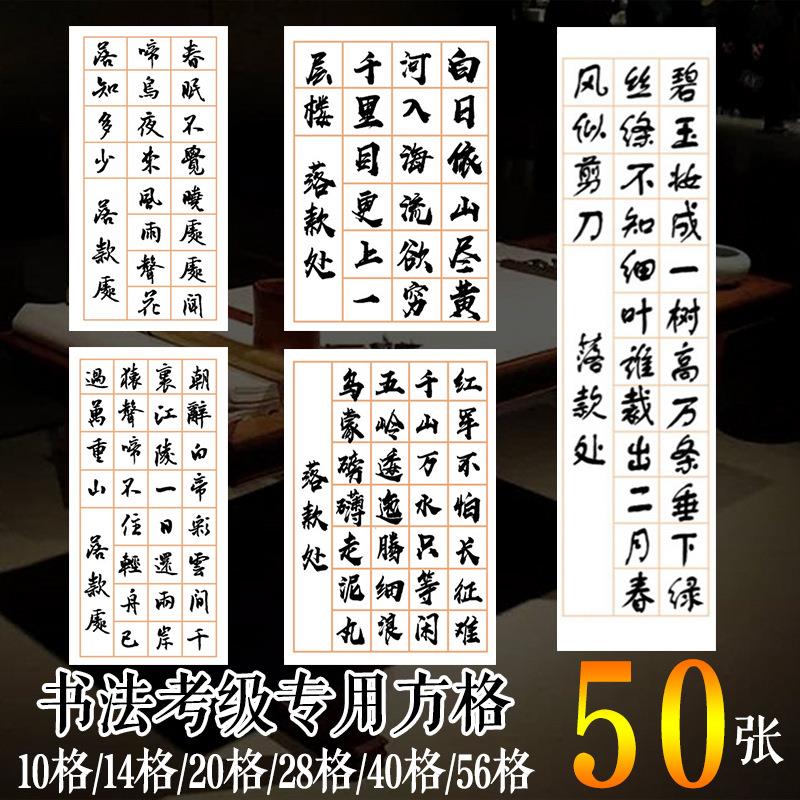 春眠不覺曉處處聞
啼鳥夜來風雨聲花
落知多少
落款處
白日依山尽黄
河入海流欲穷
千里目更上一
层楼
落款处
碧玉妆成一树高万条垂下绿
丝绦不知细叶谁裁出二月春
风似剪刀
落款处
朝辭白帝彩雲間千
裏江陵一日還兩岸
猿聲啼不住輕舟已
過萬重山
落款處
红军不怕长征难
千山万水只等闲
五岭逶迤腾细浪
乌蒙磅礴走泥丸
落款处
书法考级专用方格
10格/14格/20格/28格/40格/56格
50张